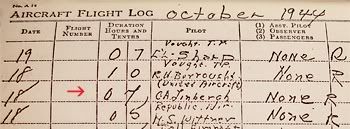 No. A 14
AIRCRAFT FLIGHT LOG October 1944
DATE FLIGHT NUMBER DURATION HOURS AND TENTHS PILOT (1) ASST. PILOT (2) OBSERVER (3) PASSENGERS
Vought,
19 0 7 Sharp None R
Vought,
18 1 0 R.W. Burroughs None R
(United Aircraft)
18 0 7 C.A. Linbergh None R
Republic,
18 0 5 H.S. Wittner None R